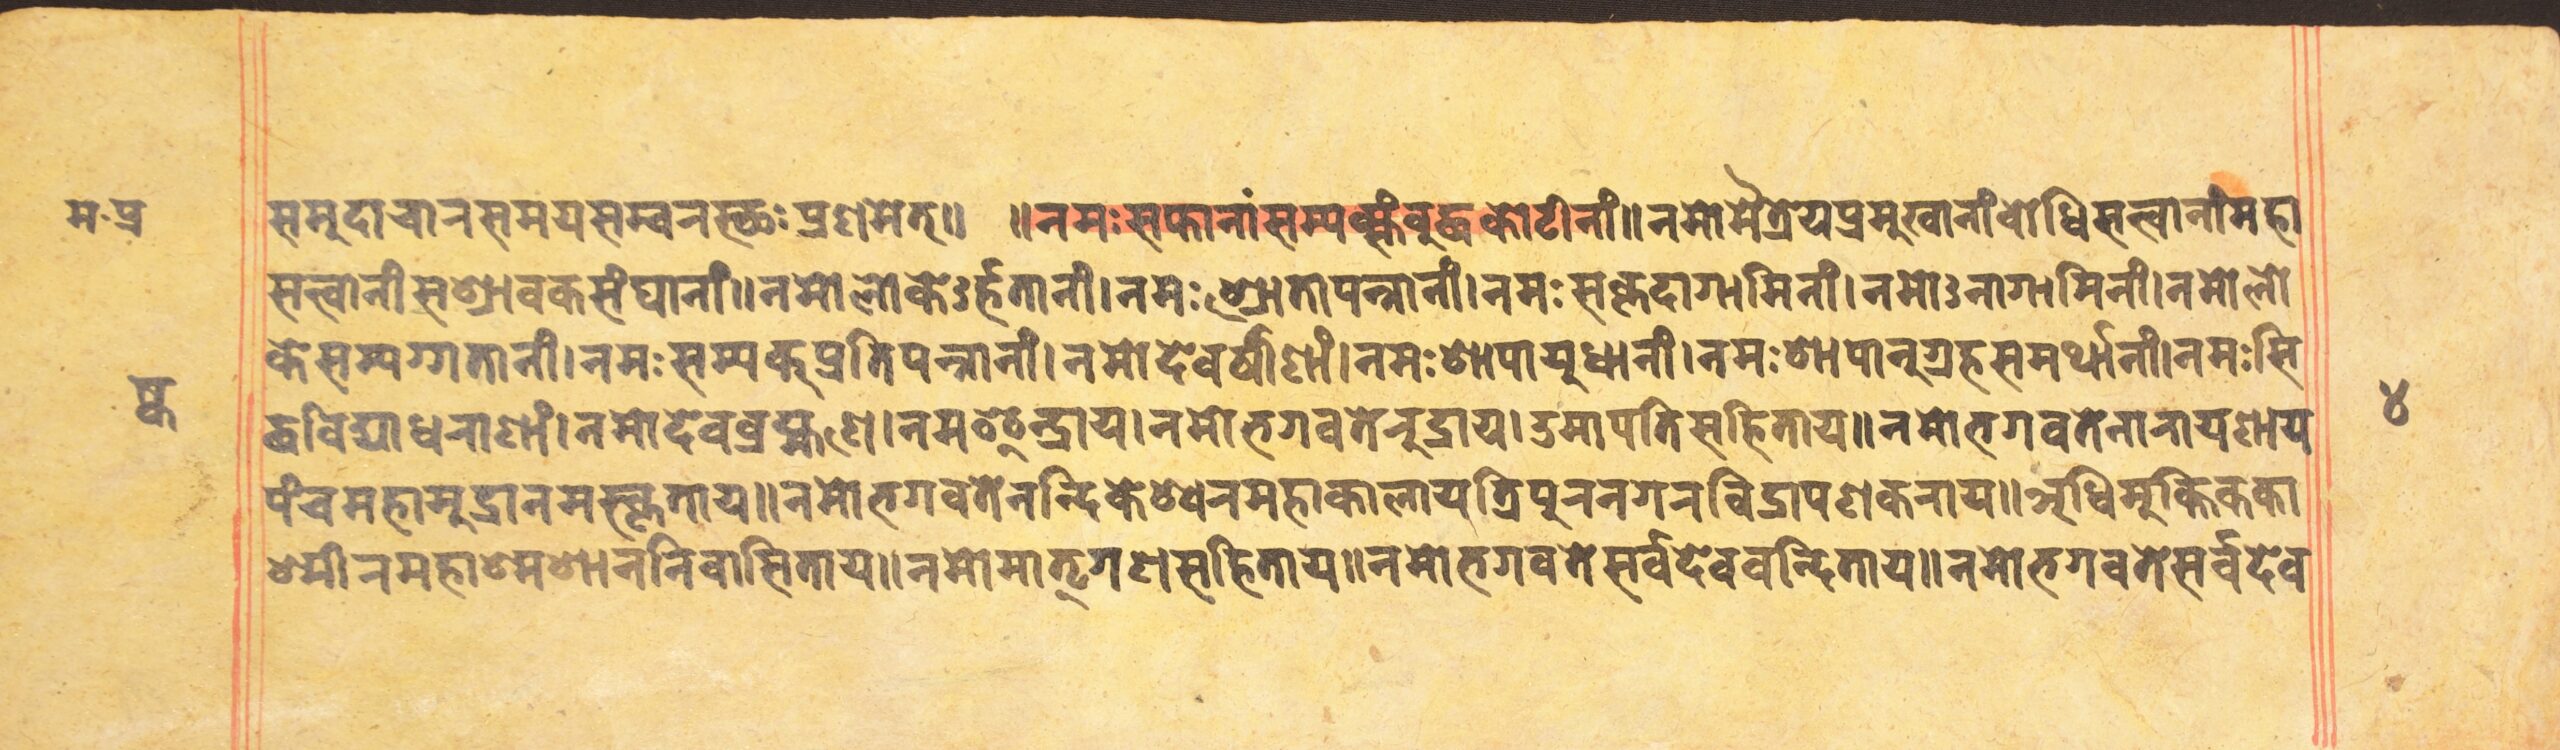 मःप्र
समुदाचारसमयसम्वरस्थः प्रणमेत्॥ ॥नमःसप्तानांसम्यक्संवुद्धकोटीनां॥नमोमैत्रेयप्रमुखानांवोधिसत्त्वानांमहा
सत्त्वानांसश्रावकसंघानां॥नमोलोकेऽर्हतानां।नमःश्रोतापन्नानां।नमःसकृदागामिनां।नमोऽनागामिनां।नमोलो
केसम्यग्गतानां।नमःसम्यक्प्रतिपन्नानां।नमोदेवर्षीणां।नमःशापायुधानां।नमःशापानुग्रहसमर्थानां।नमःसि
द्धविद्याधराणां।नमोदेवव्रह्मणे।नमइन्द्राय।नमोभगवतेरुद्राय।उमापतिसहिताय॥नमोभगवतेनारायणाय
पंचमहामुद्रानमस्कृताय॥नमोभगवतेनन्दिकेश्वरमहाकालायत्रिपुरनगरविद्रापणकराय॥अधिमुक्तिकका
श्मीरमहाश्मशाननिवासिताय॥नमोमातृगणसहिताय॥नमोभगवतेसर्वदेववन्दिताय॥नमोभगवतेसर्वदेव
४